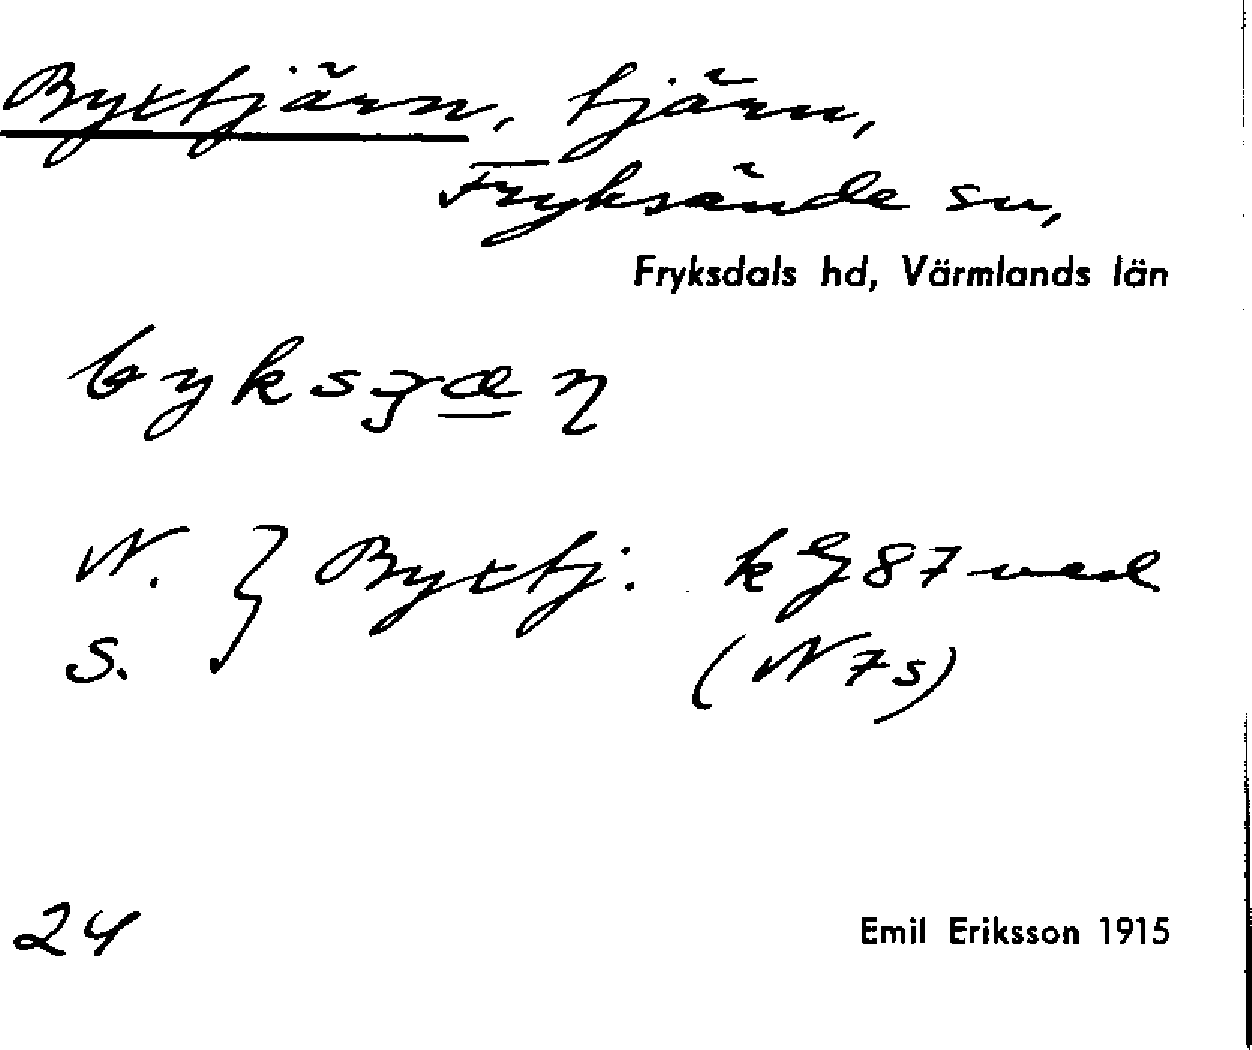 Byxtjärn, tjärn,
Fryksände sn,
Fryksdals hd, Värmlands län
N. } Byxtj.
S.
(N 7 s)
24
Emil Eriksson 1915